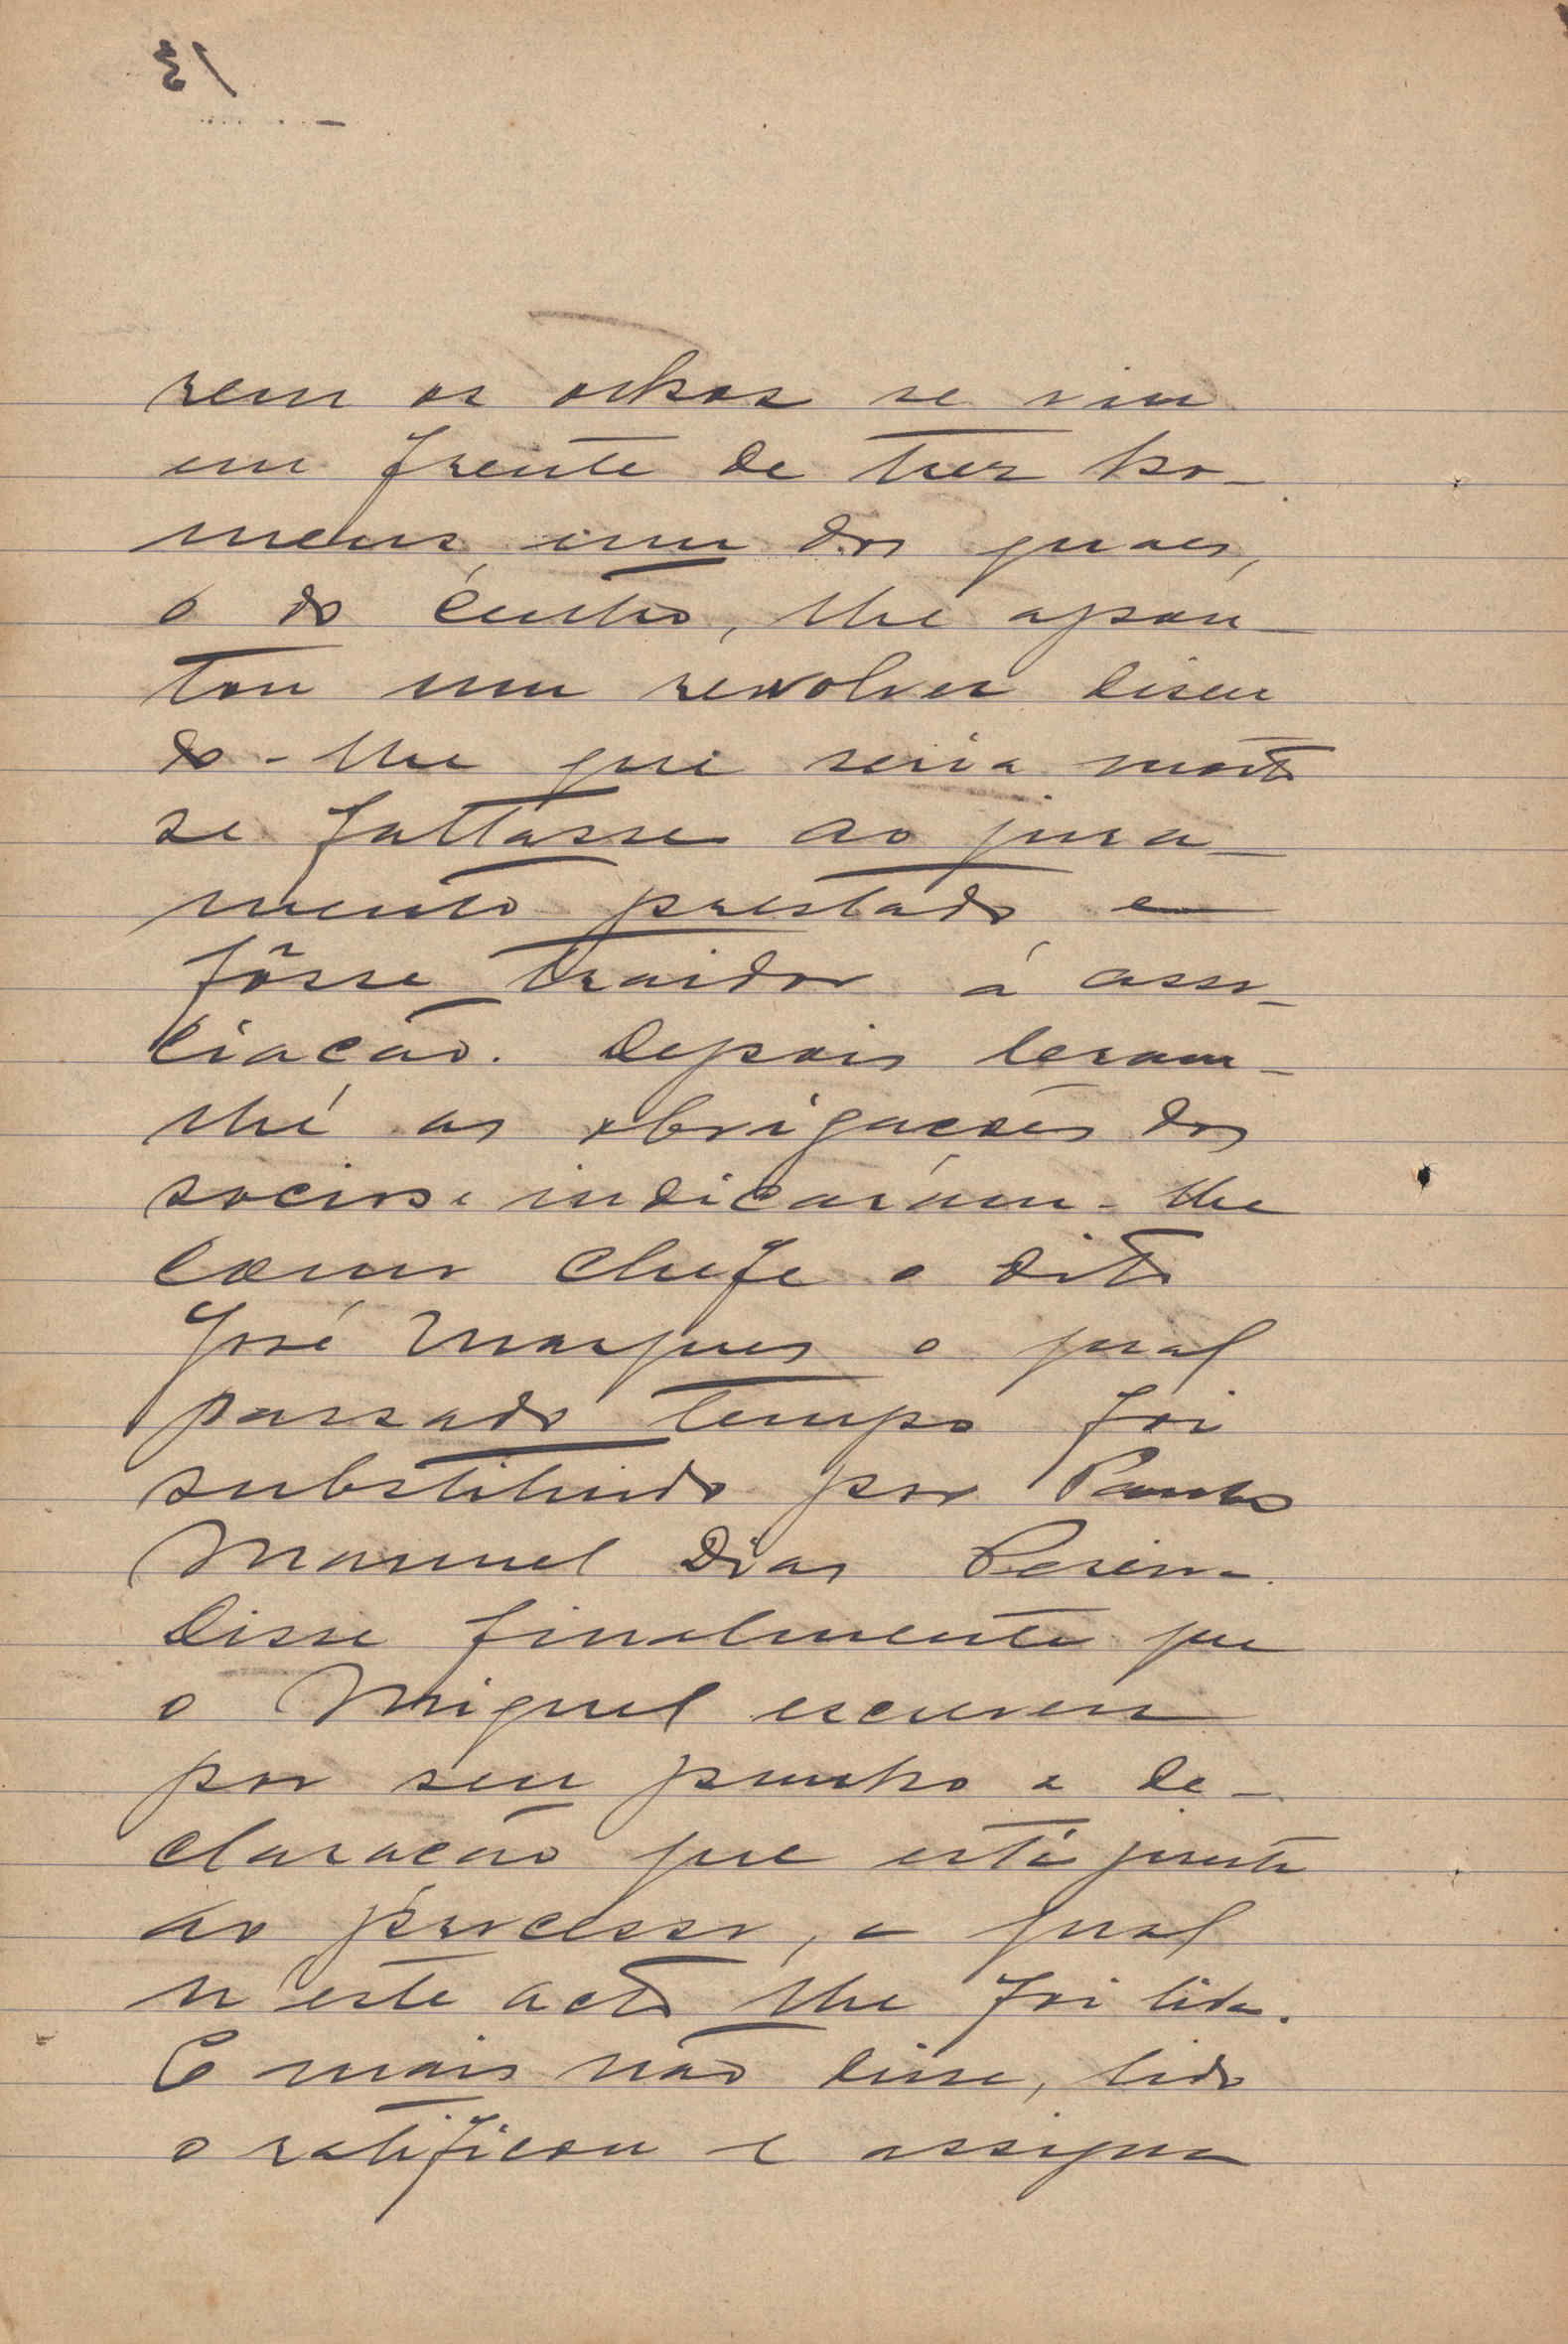 rem os olhos se viu
em frente de trez ho-
mens, um dos quaes,
o do centro, lhe apon-
tou um rewolver disen
do-lhe que seria morto
se faltasse ao jura-
mento prestado e
fôsse traidor á asso-
ciacão. Depois leram-
lhe as obrigacões dos
socios e indicaram-lhe
como chefe o dito
José Marques o qual
passado tempo foi
substituido por
Manuel Dias Pereira.
Disse finalmente que
o Miguel escreveu
por seu punho a de-
claracão que está junta
ao processo, a qual
n'este acto lhe foi lida.
E mais não disse, lido
o ratificou e assigna